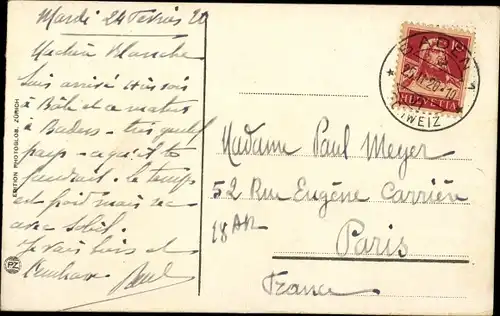 Mardi 24 Février 20
Ma chère Blanche
Suis arrivé hier soir
à Bâle et ce matin
à Baden - très joli
pays - ce qu'il te
faudrait. Le temps
est froid mais sec
avec soleil.
Je vais bien et
t'embrasse Paul
EDITION PHOTOGLOB, ZÜRICH
PZ
BADEN 1
25.II.20
HELVETIA
Madame Paul Meyer
52 Rue Eugène Carrière
18 Arr
Paris
France